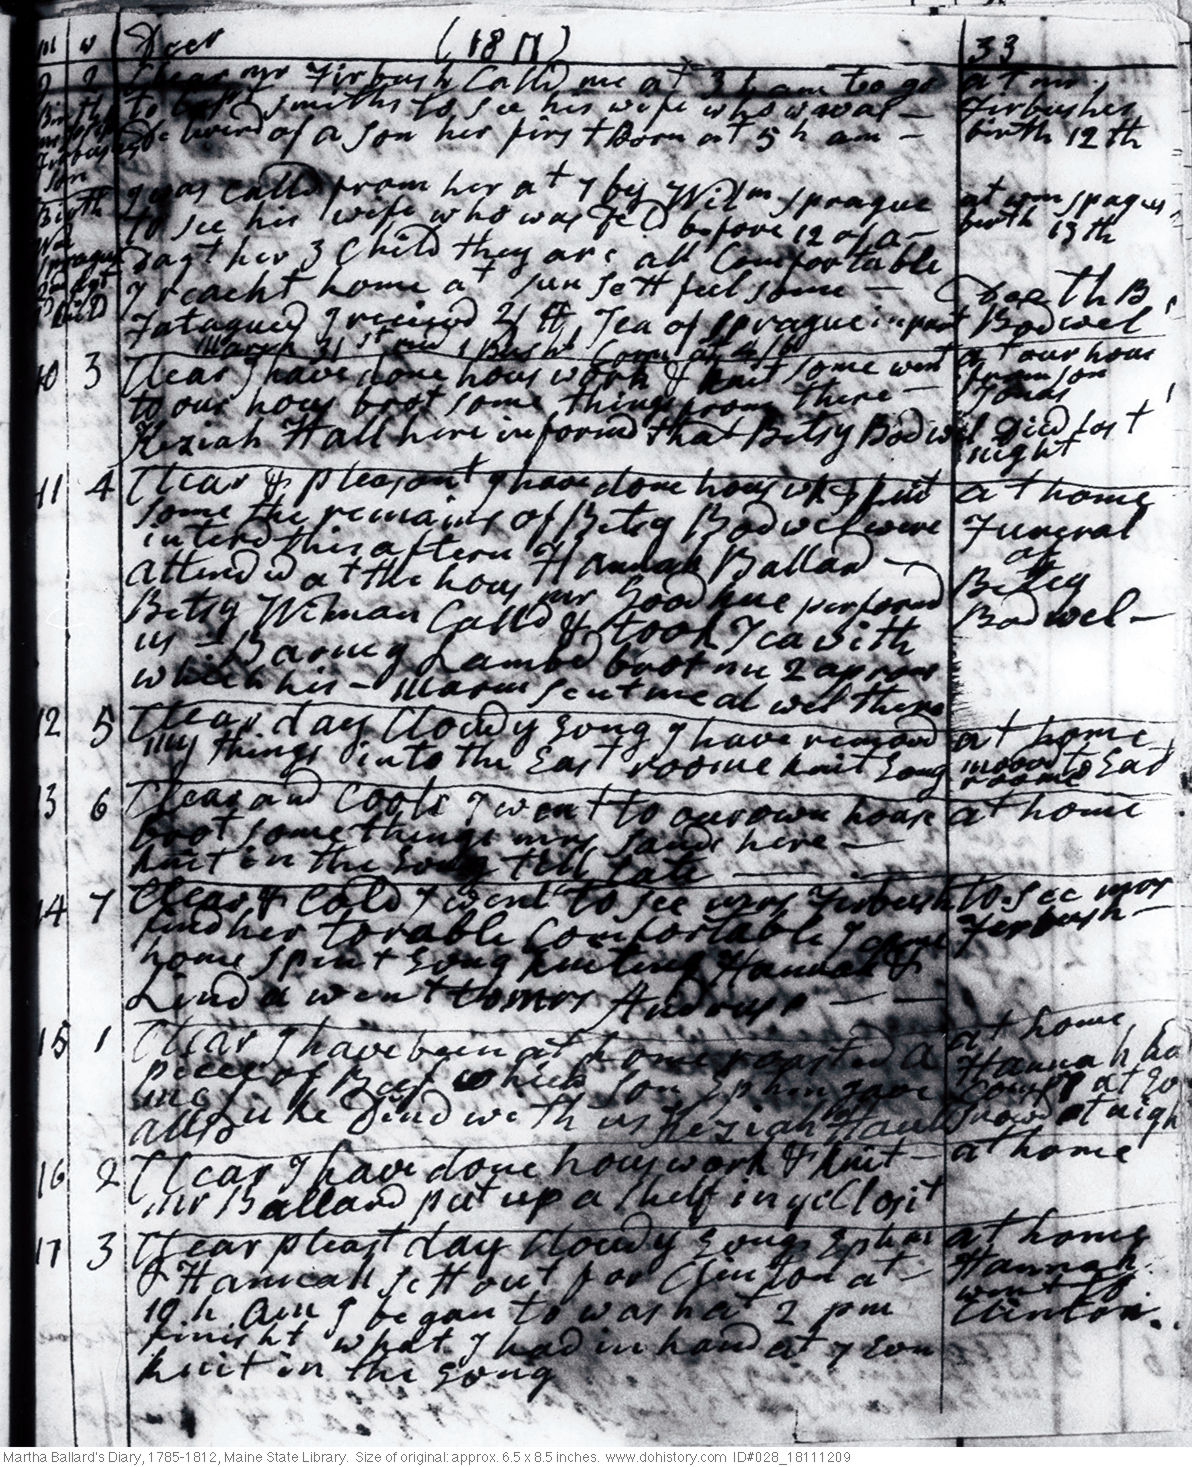 m w Decr (1811) 33
9 2 Clear mr Firbush Calld me at 3 h am to go at mr
Birth to Capt Smiths to see his wife who was al— Firbushes
mr Firbushes Delivrd of a son her first Born at 5 h am — birth 12th
son
Birth I was Calld from her at 7 by Wilm Sprague at wm Spragues
Wm to see his wife who was Deld before 12 of a— birth 13th
Sprague Dagt her 3 Child they are all Comfortable
Dagt I reacht home at sun sett feel some — Death B
3 Child Fatagued I receivd 2/ ft Tea of Sprague in part Bodwel
March 31st recd 1 Bushl Corn at 4/
10 3 Clear I have done hous work & knit some went at our hous
to our hous brot some things from there — from son
Jonas
Keziah Hall here informd that Betsy Bodwel Died last
night
11 4 Clear & pleasant I have done hous wk & knit at home
some the remains of Betsy Bodwel were Funeral
interd this aftern Hannah Ballard — of
attend at the hous mr Goodhue performd Betsy
Betsy Wiman Calld & took Tea with Bodwel —
us — Barney Lambd brot me 2 aprons
which his — Marm sent me al wel there
12 5 Clear day Cloudy Evng I have removd at home
my things into the East roome knit Evng moovd to East
roome
13 6 Clear and Coold I went to our own house at home
brot some things mrs Sands here —
knit in the Evng till late —
14 7 Clear & Cold I went to see mrs Firbush to see mrs
find her torable Comfortable I came Ferbush —
home spent Evng knitting Hannah &
Linda went to mrs Andruss — —
15 1 Clear I have been at home roasted a at home
peice of Beef which son Ephm gave Hannah ha
me he Dind with us Keziah Hall Compy at Ev
allso snowd at nigh
16 2 Clear I have done hous work & knit — at home
mr Ballard put up a shelf in ye Closit
17 3 Clear pleast day Cloudy Evng Ephm at home
& Hannah sett out for Clinton at — Hannah
10 h Am I began to wash at 2 pm went to
finisht what I had in hand at 7 Evn Clinton.
knit in the Evng
Martha Ballard's Diary, 1785-1812, Maine State Library. Size of original: approx. 6.5 x 8.5 inches. www.dohistory.com ID#028_18111209